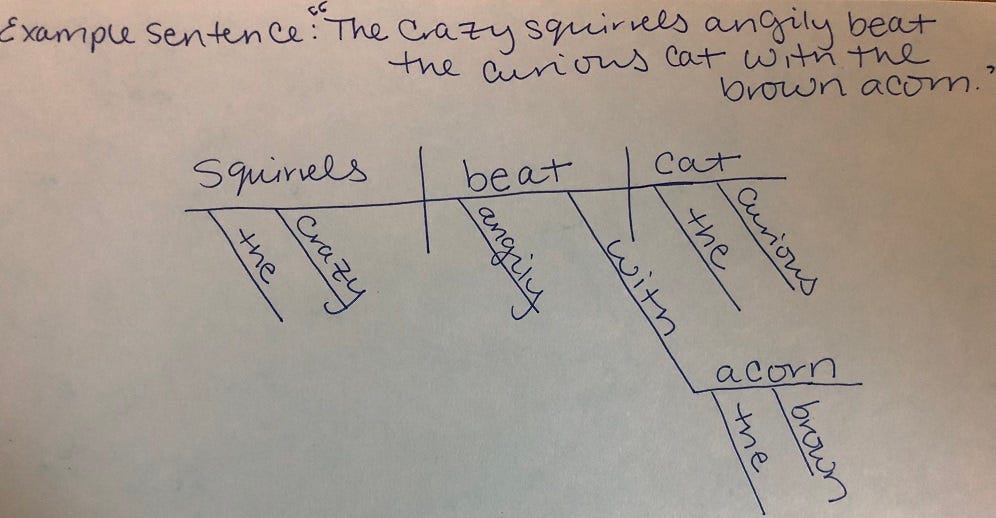 Example Sentence: "The Crazy squirrels angily beat
the curious cat with the
brown acorn."
Squirrels beat cat
the crazy angily with the curious
acorn
the brown